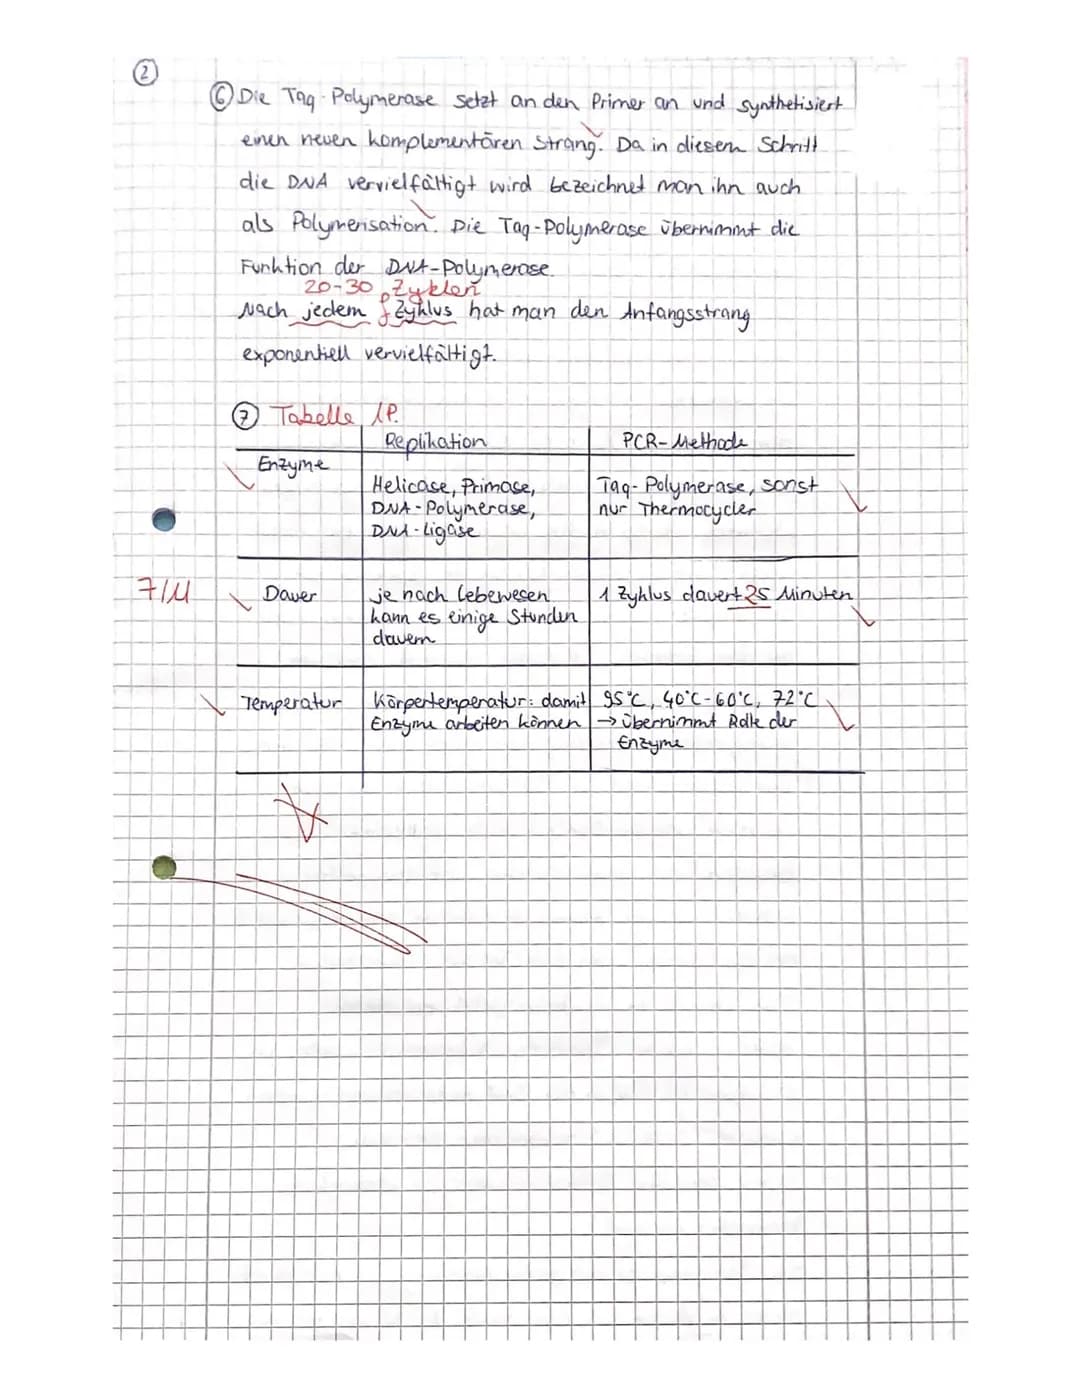 ②
⑥ Die Taq-Polymerase setzt an den Primer an und synthetisiert
einen neuen komplementären Strang. Da in diesem Schritt
die DNA vervielfältigt wird bezeichnet man ihn auch
als Polymerisation. Die Taq-Polymerase übernimmt die
Funktion der DNA-Polymerase.
20-30 Zyklen
Nach jedem Zyklus hat man den Anfangsstrang
exponentiell vervielfältigt.
⑦ Tabelle 1P.
Replikation PCR-Methode
Enzyme
Helicase, Primase, Taq-Polymerase, sonst
DNA-Polymerase, nur Thermocycler
DNA-Ligase
7/11 Dauer je nach Lebewesen 1 Zyklus dauert 25 Minuten
kann es einige Stunden
dauern
Temperatur Körpertemperatur: damit 95°C, 40°C-60°C, 72°C
Enzyme arbeiten können → übernimmt Rolle der
Enzyme